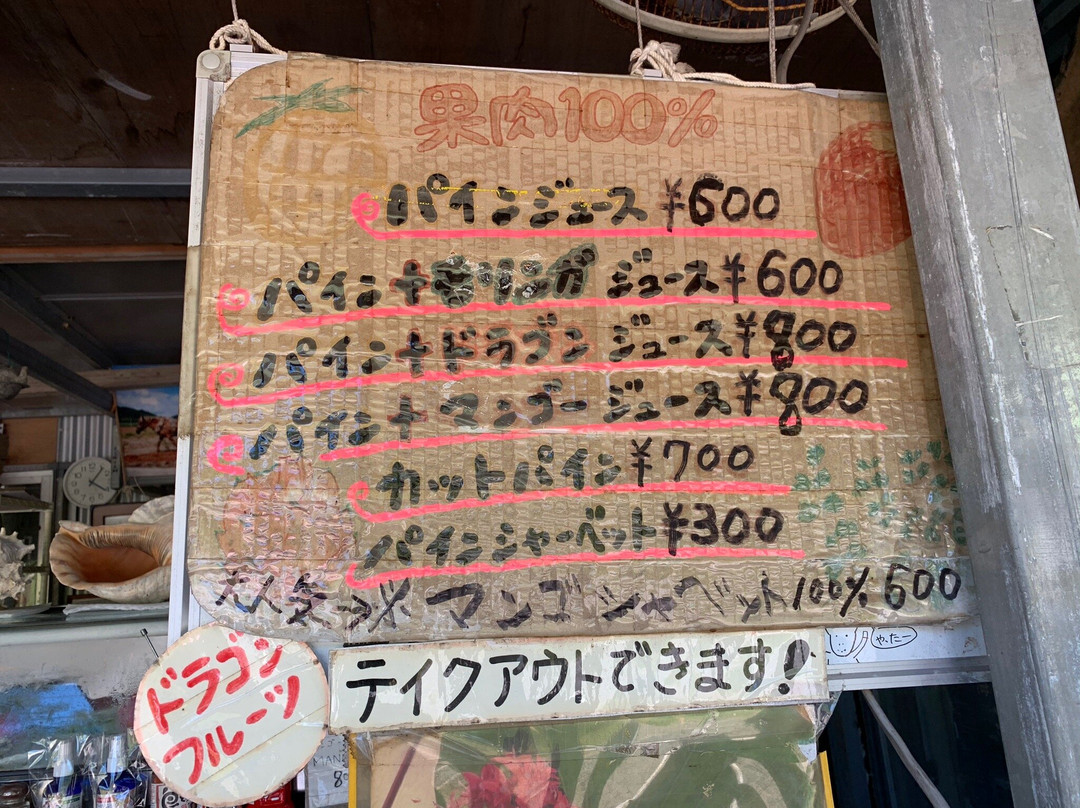 果肉100%
パインジュース ¥600
パイン+モリンガジュース ¥600
パイン+ドラゴンジュース ¥800
パイン+マンゴージュース ¥800
カットパイン ¥700
パインシャーベット ¥300
大人気→※マンゴシャーベット100% 600
や、たー
ドラゴン
フルーツ
テイクアウトできます!